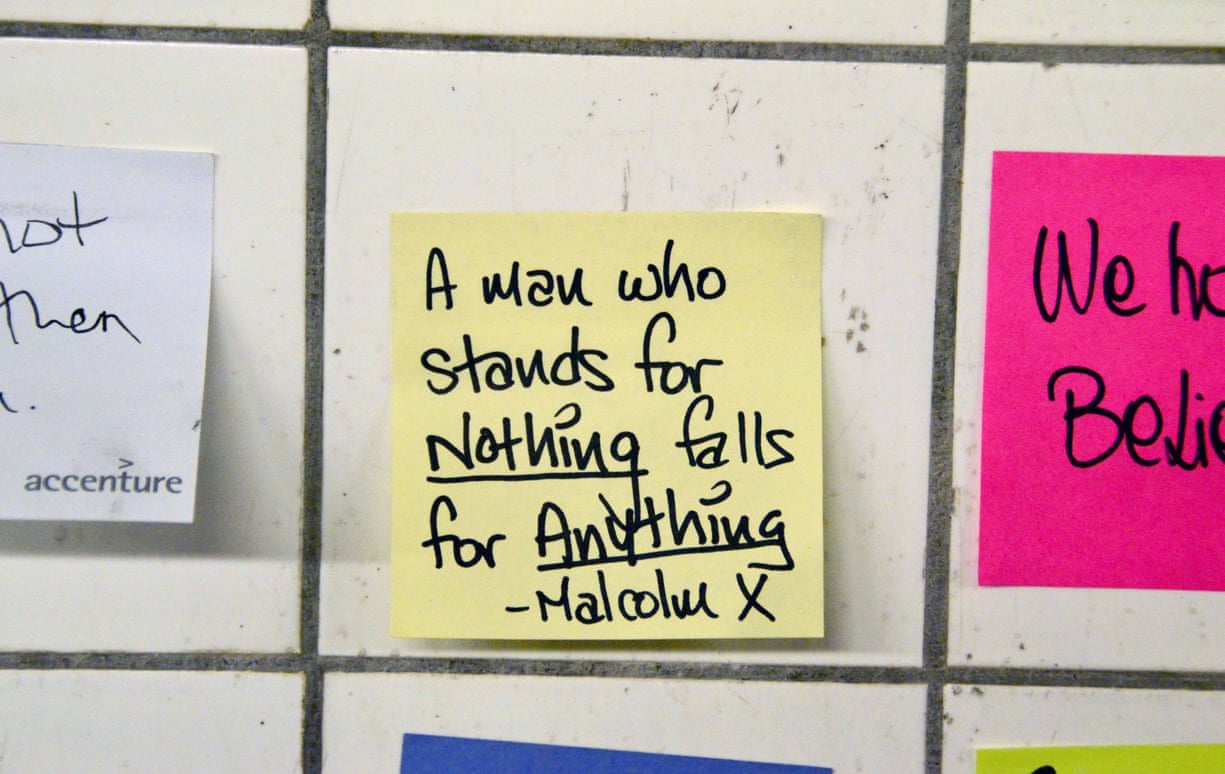 then
accenture
A man who
stands for
Nothing falls
for Anything
-Malcolm X
We